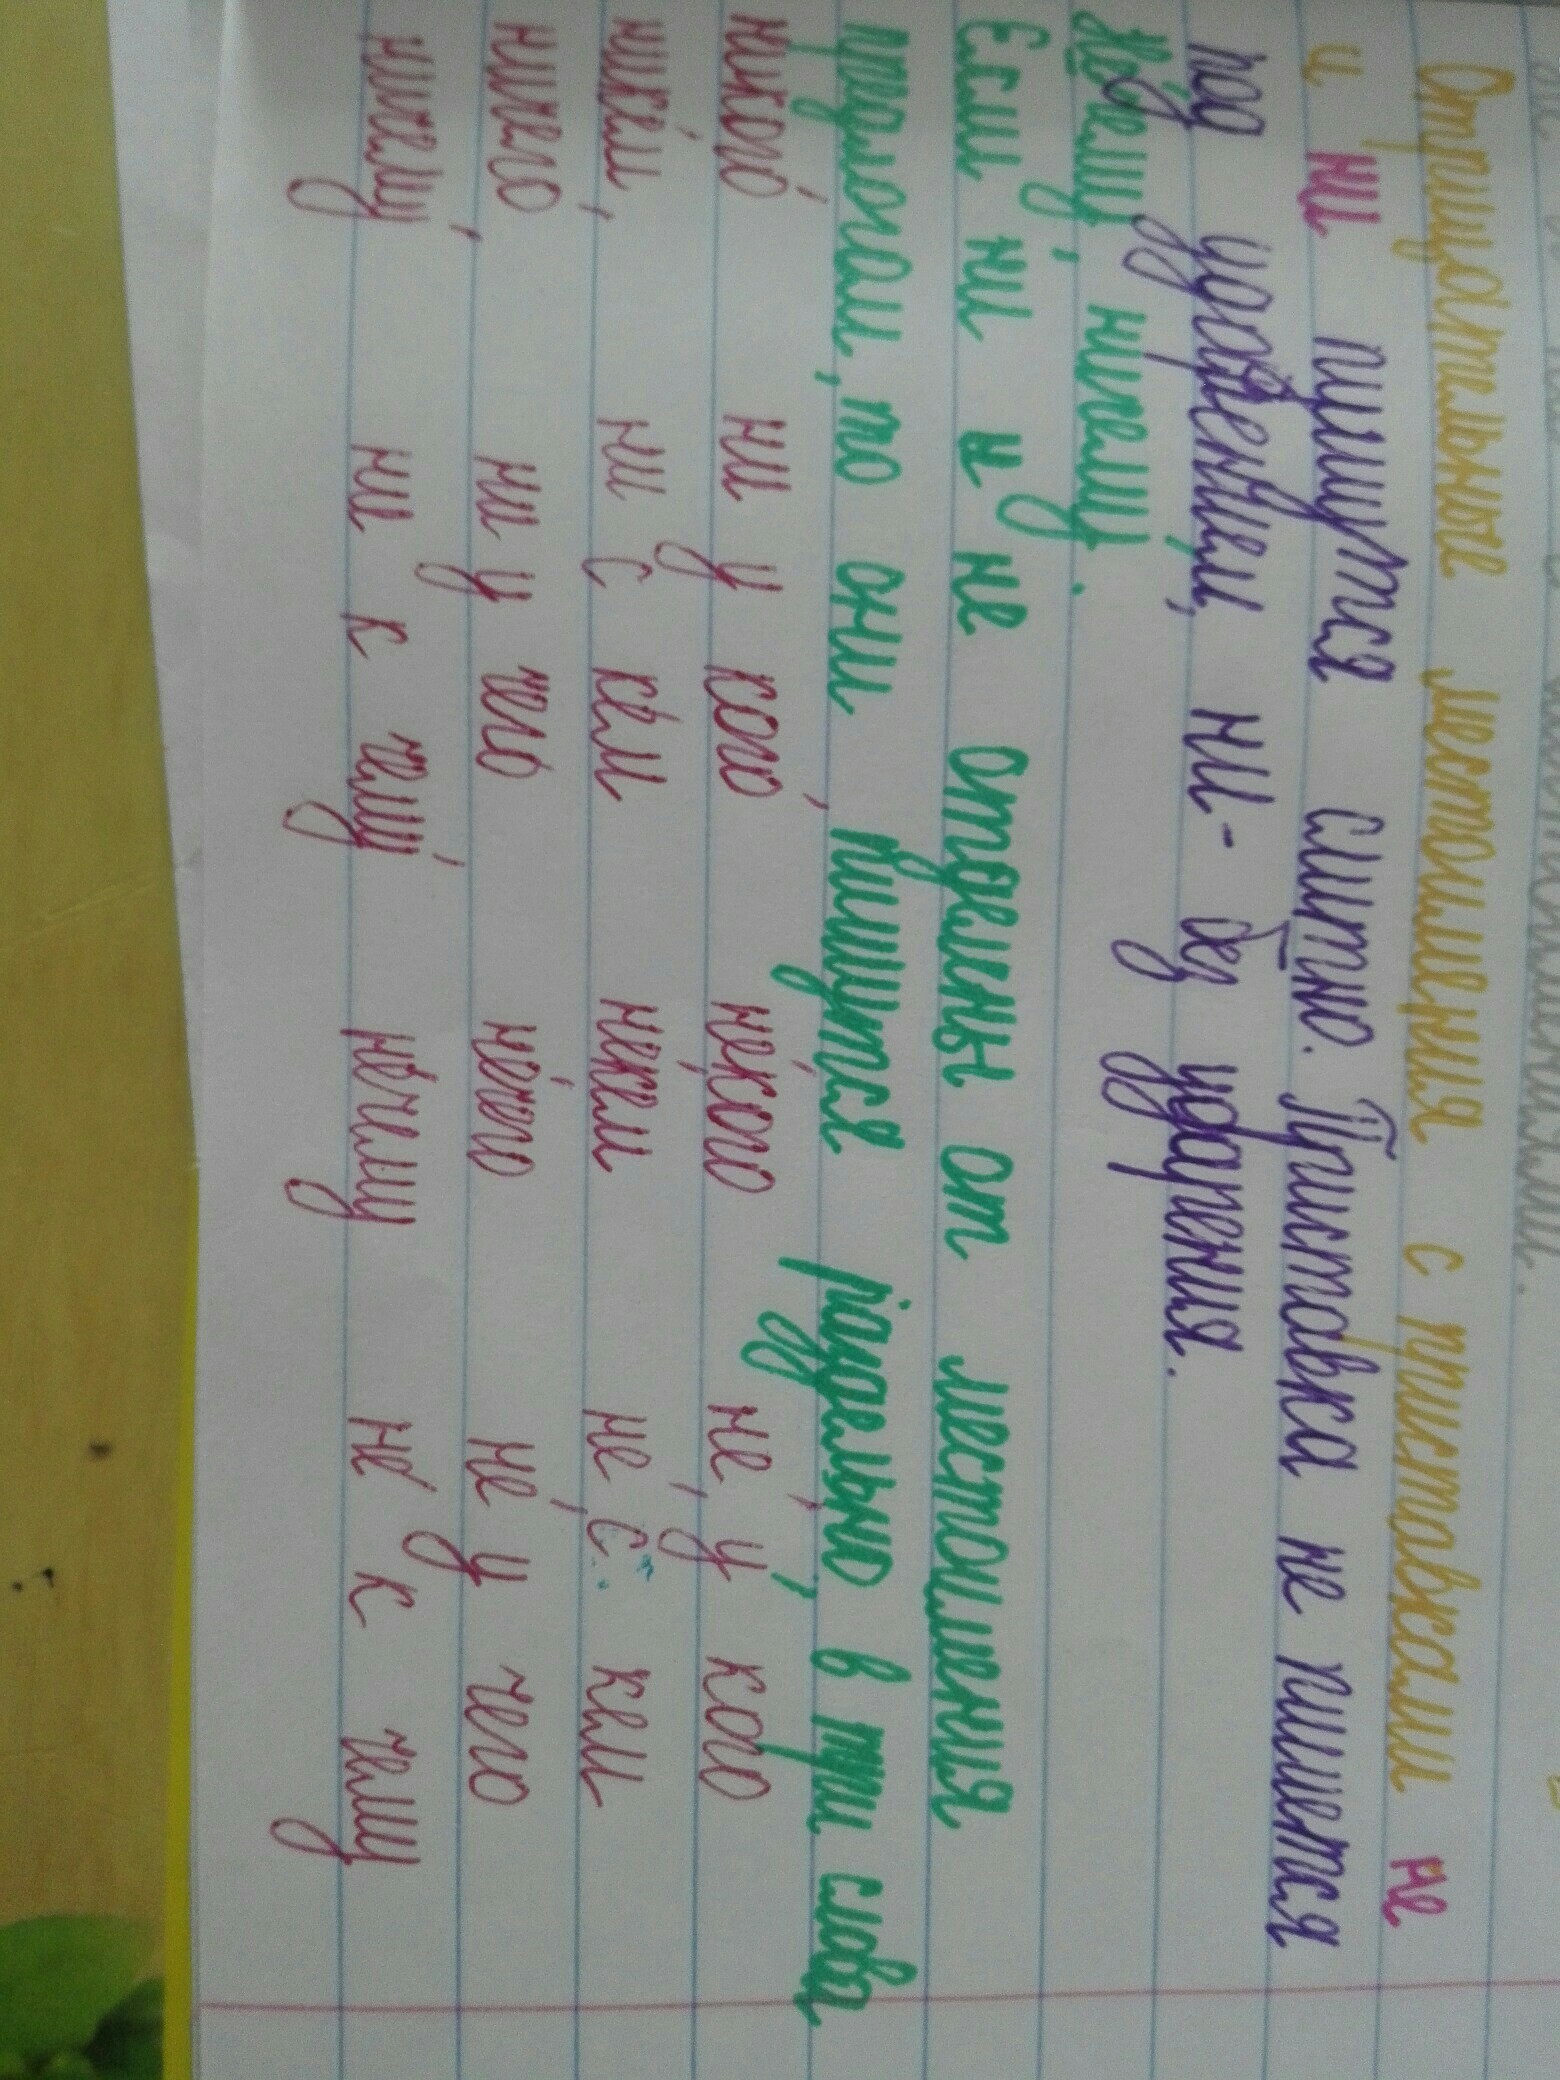 Отрицательные местоимения с приставками не
и ни пишутся слитно. Приставка не пишется
под ударением, ни- без ударения.
Не́чему, ничему́.
Если ни и не отделены от местоимения
предлогам, то они пишутся раздельно в три слова
никого́ ни у кого́, не́кого не́ у кого
нике́м, ни с ке́м не́кем не́ с кем
ничего́ ни у чего́ не́чего не́ у чего
ничему́, ни к чему́ не́чему не́ к чему